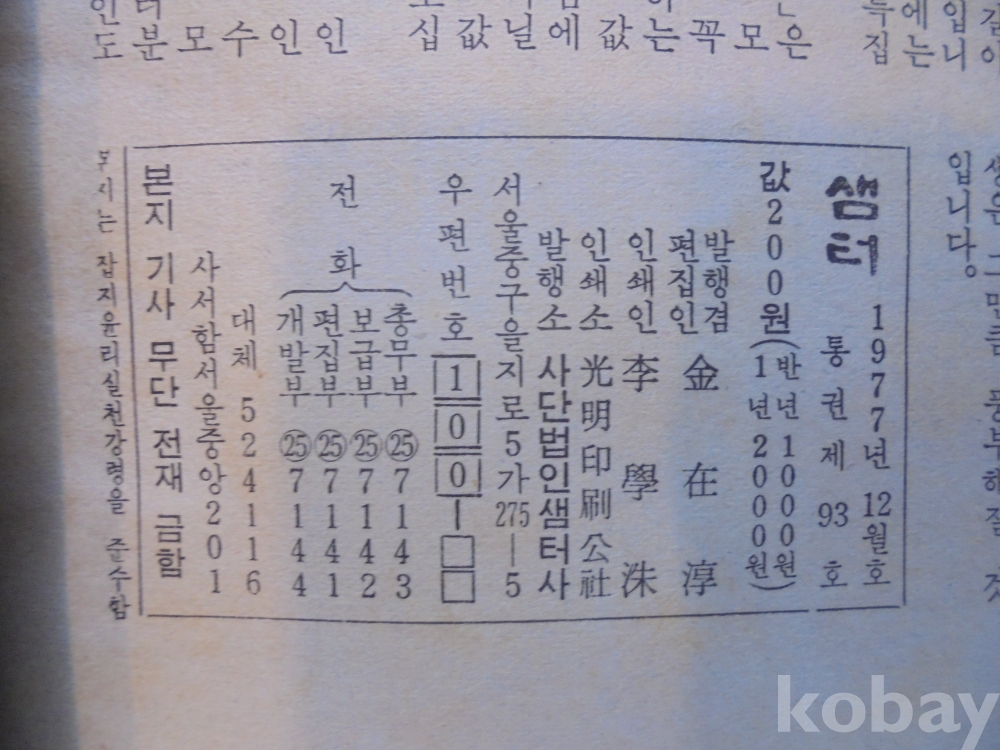 샘터
1977년 12월호
통권 제 93 호
값 200원 (반년 1000원 1년 2000원)
발행겸 편집인 金在淳
인쇄인 李學洙
인쇄소 光明印刷公社
발행소 사단법인 샘터사
서울중구을지로5가 275―5
우편번호 100―□□
전화
총무부 ㉕7143
보급부 ㉕7142
편집부 ㉕7141
개발부 ㉕7144
대체 524116
사서함서울중앙201
본지 기사 무단 전재 금합
잡지윤리실천강령을 준수함
입니다.
도분모수인인
십값닐에값는꼭모은
kobay